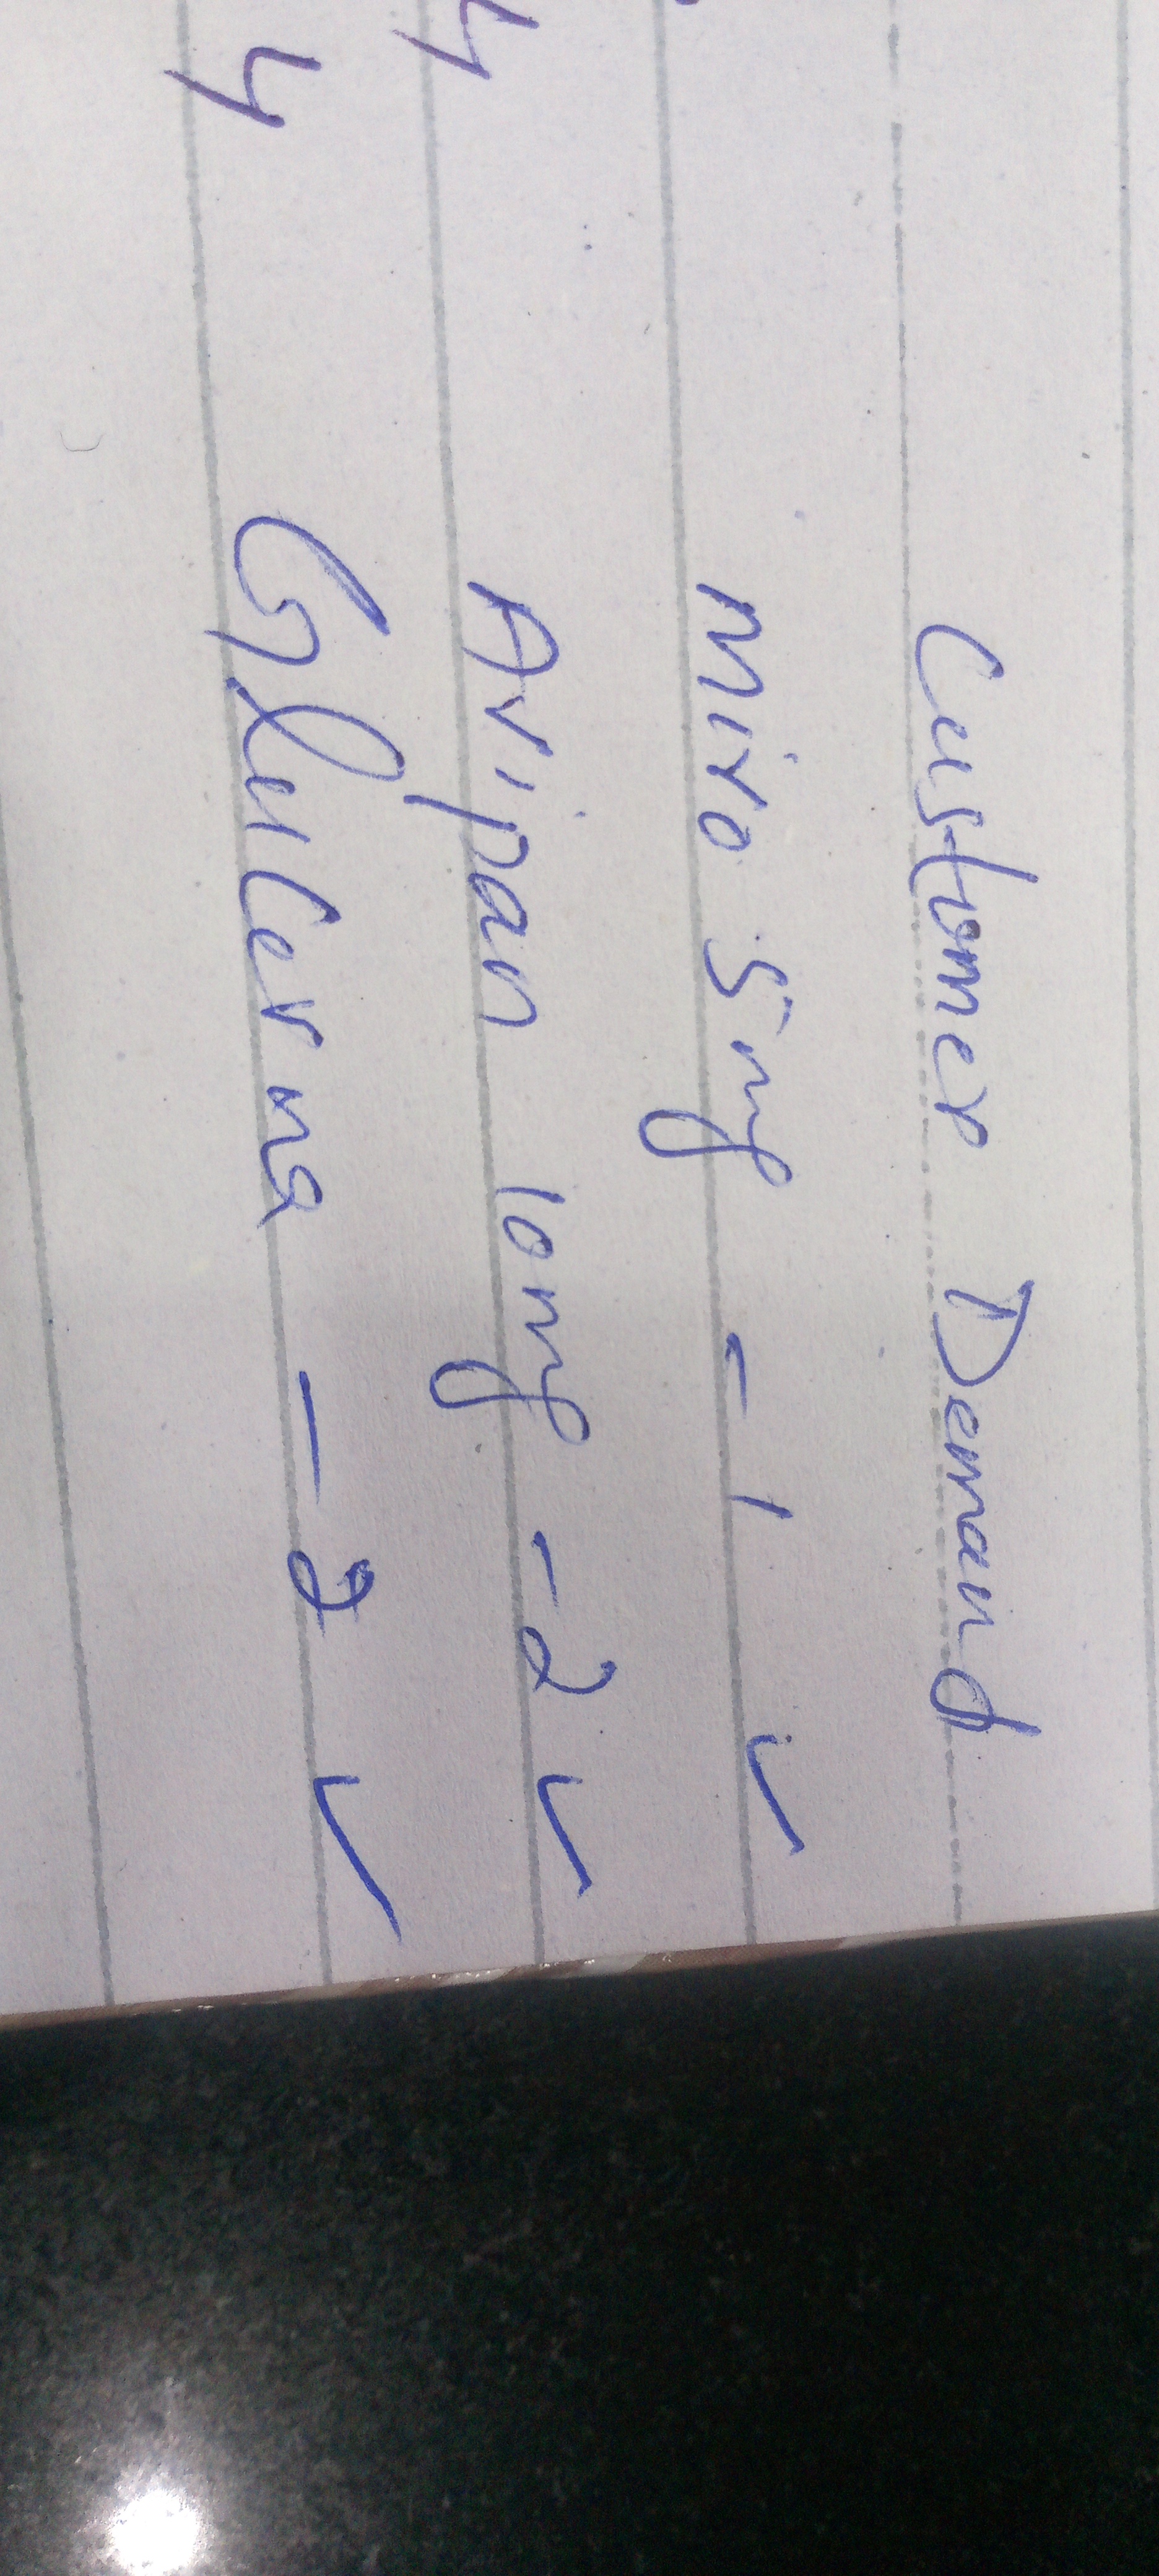 Customer Demand
Miro 5mg - 1 ✓
Avipan 10mg - 2 ✓
4 Glucerna - 2 ✓
4